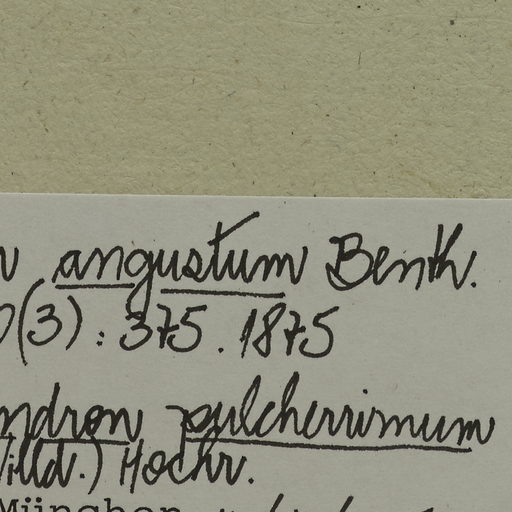 angustum Benth.
(3) : 375 . 1875
ndron pulcherrimum
illd.) Hochr.